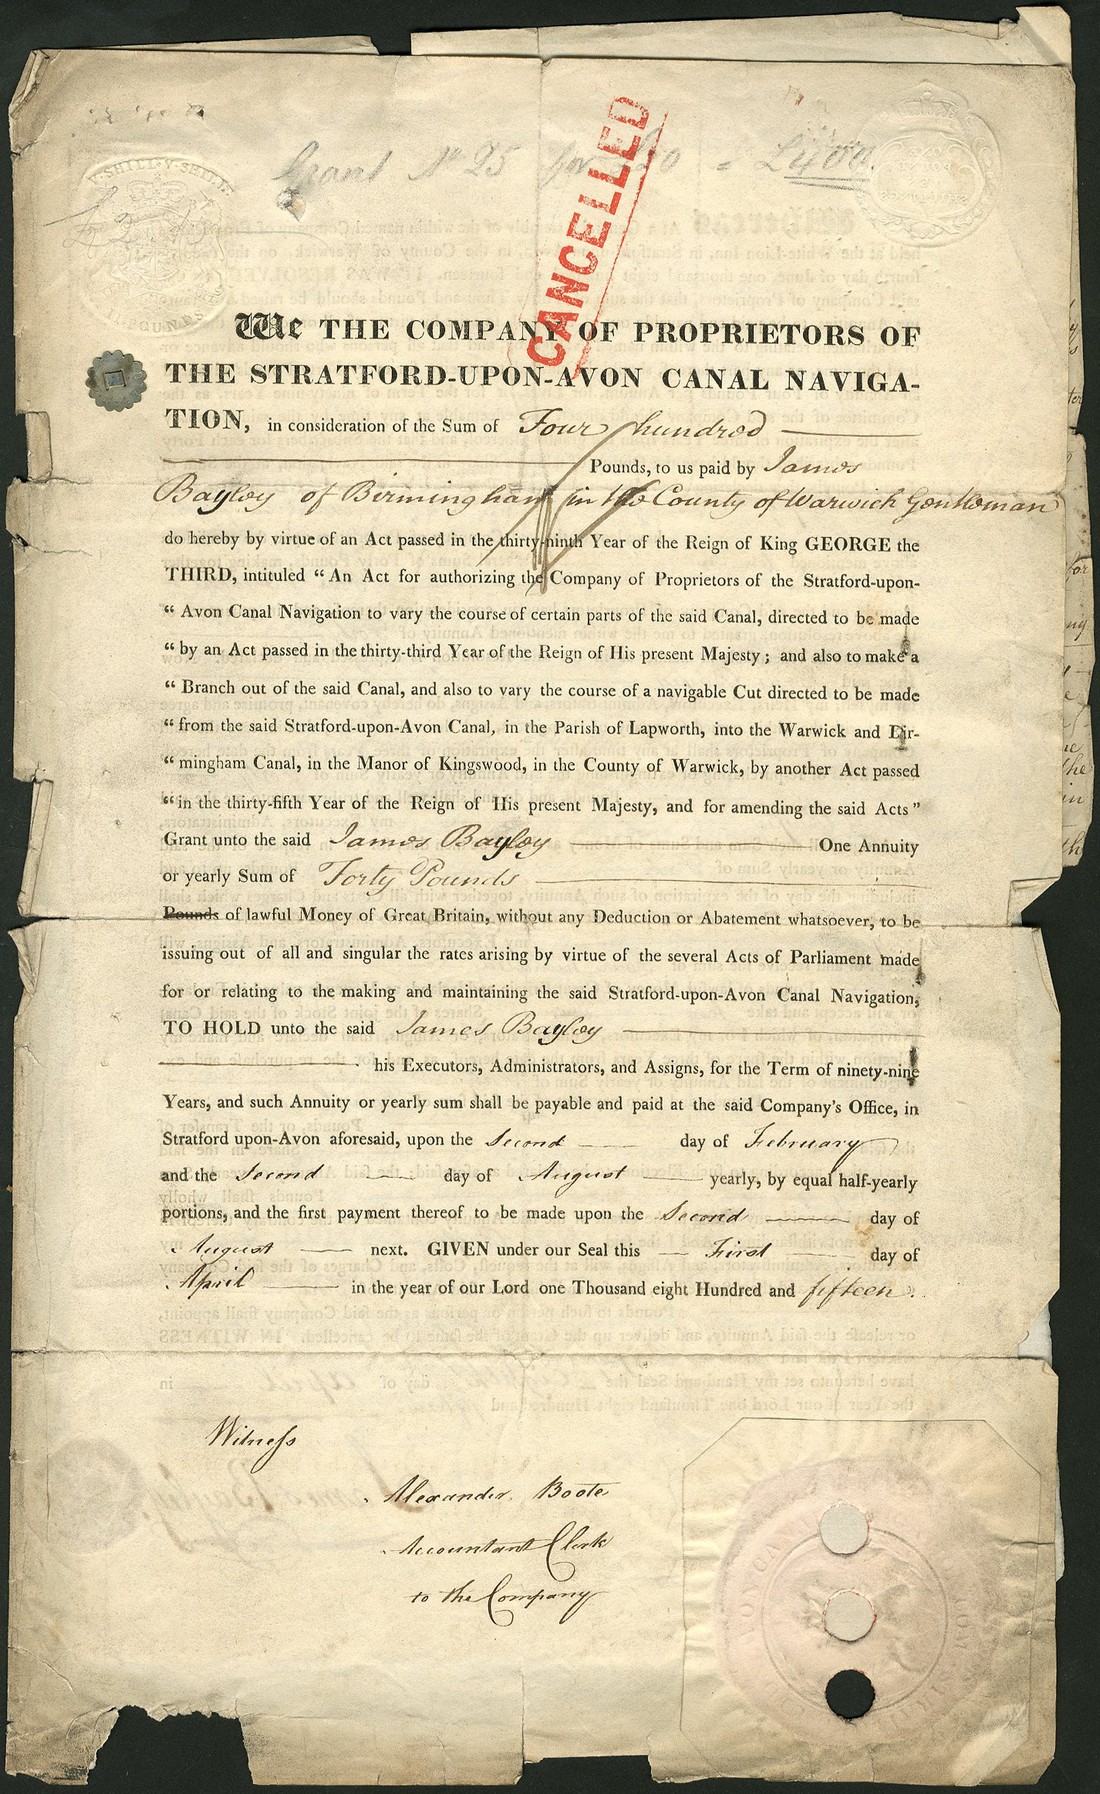 V·SHILL·V·SHILL·
Grant No 25 for £40 = £400.
CANCELLED
We THE COMPANY OF PROPRIETORS OF
THE STRATFORD-UPON-AVON CANAL NAVIGA-
TION, in consideration of the Sum of Four hundred
Pounds, to us paid by James
Bayley of Birmingham in the County of Warwick Gentleman
do hereby by virtue of an Act passed in the thirty-ninth Year of the Reign of King GEORGE the
THIRD, intituled “ An Act for authorizing the Company of Proprietors of the Stratford-upon-
“ Avon Canal Navigation to vary the course of certain parts of the said Canal, directed to be made
“ by an Act passed in the thirty-third Year of the Reign of His present Majesty ; and also to make a
“ Branch out of the said Canal, and also to vary the course of a navigable Cut directed to be made
“ from the said Stratford-upon-Avon Canal, in the Parish of Lapworth, into the Warwick and Bir-
“ mingham Canal, in the Manor of Kingswood, in the County of Warwick, by another Act passed
“ in the thirty-fifth Year of the Reign of His present Majesty, and for amending the said Acts ”
Grant unto the said James Bayley One Annuity
or yearly Sum of Forty Pounds
Pounds of lawful Money of Great Britain, without any Deduction or Abatement whatsoever, to be
issuing out of all and singular the rates arising by virtue of the several Acts of Parliament made
for or relating to the making and maintaining the said Stratford-upon-Avon Canal Navigation,
TO HOLD unto the said James Bayley
his Executors, Administrators, and Assigns, for the Term of ninety-nine
Years, and such Annuity or yearly sum shall be payable and paid at the said Company's Office, in
Stratford upon-Avon aforesaid, upon the Second day of February
and the Second day of August yearly, by equal half-yearly
portions, and the first payment thereof to be made upon the Second day of
August next. GIVEN under our Seal this First day of
April in the year of our Lord one Thousand eight Hundred and fifteen.
Witness
Alexander Boote
Accountant Clerk
to the Company